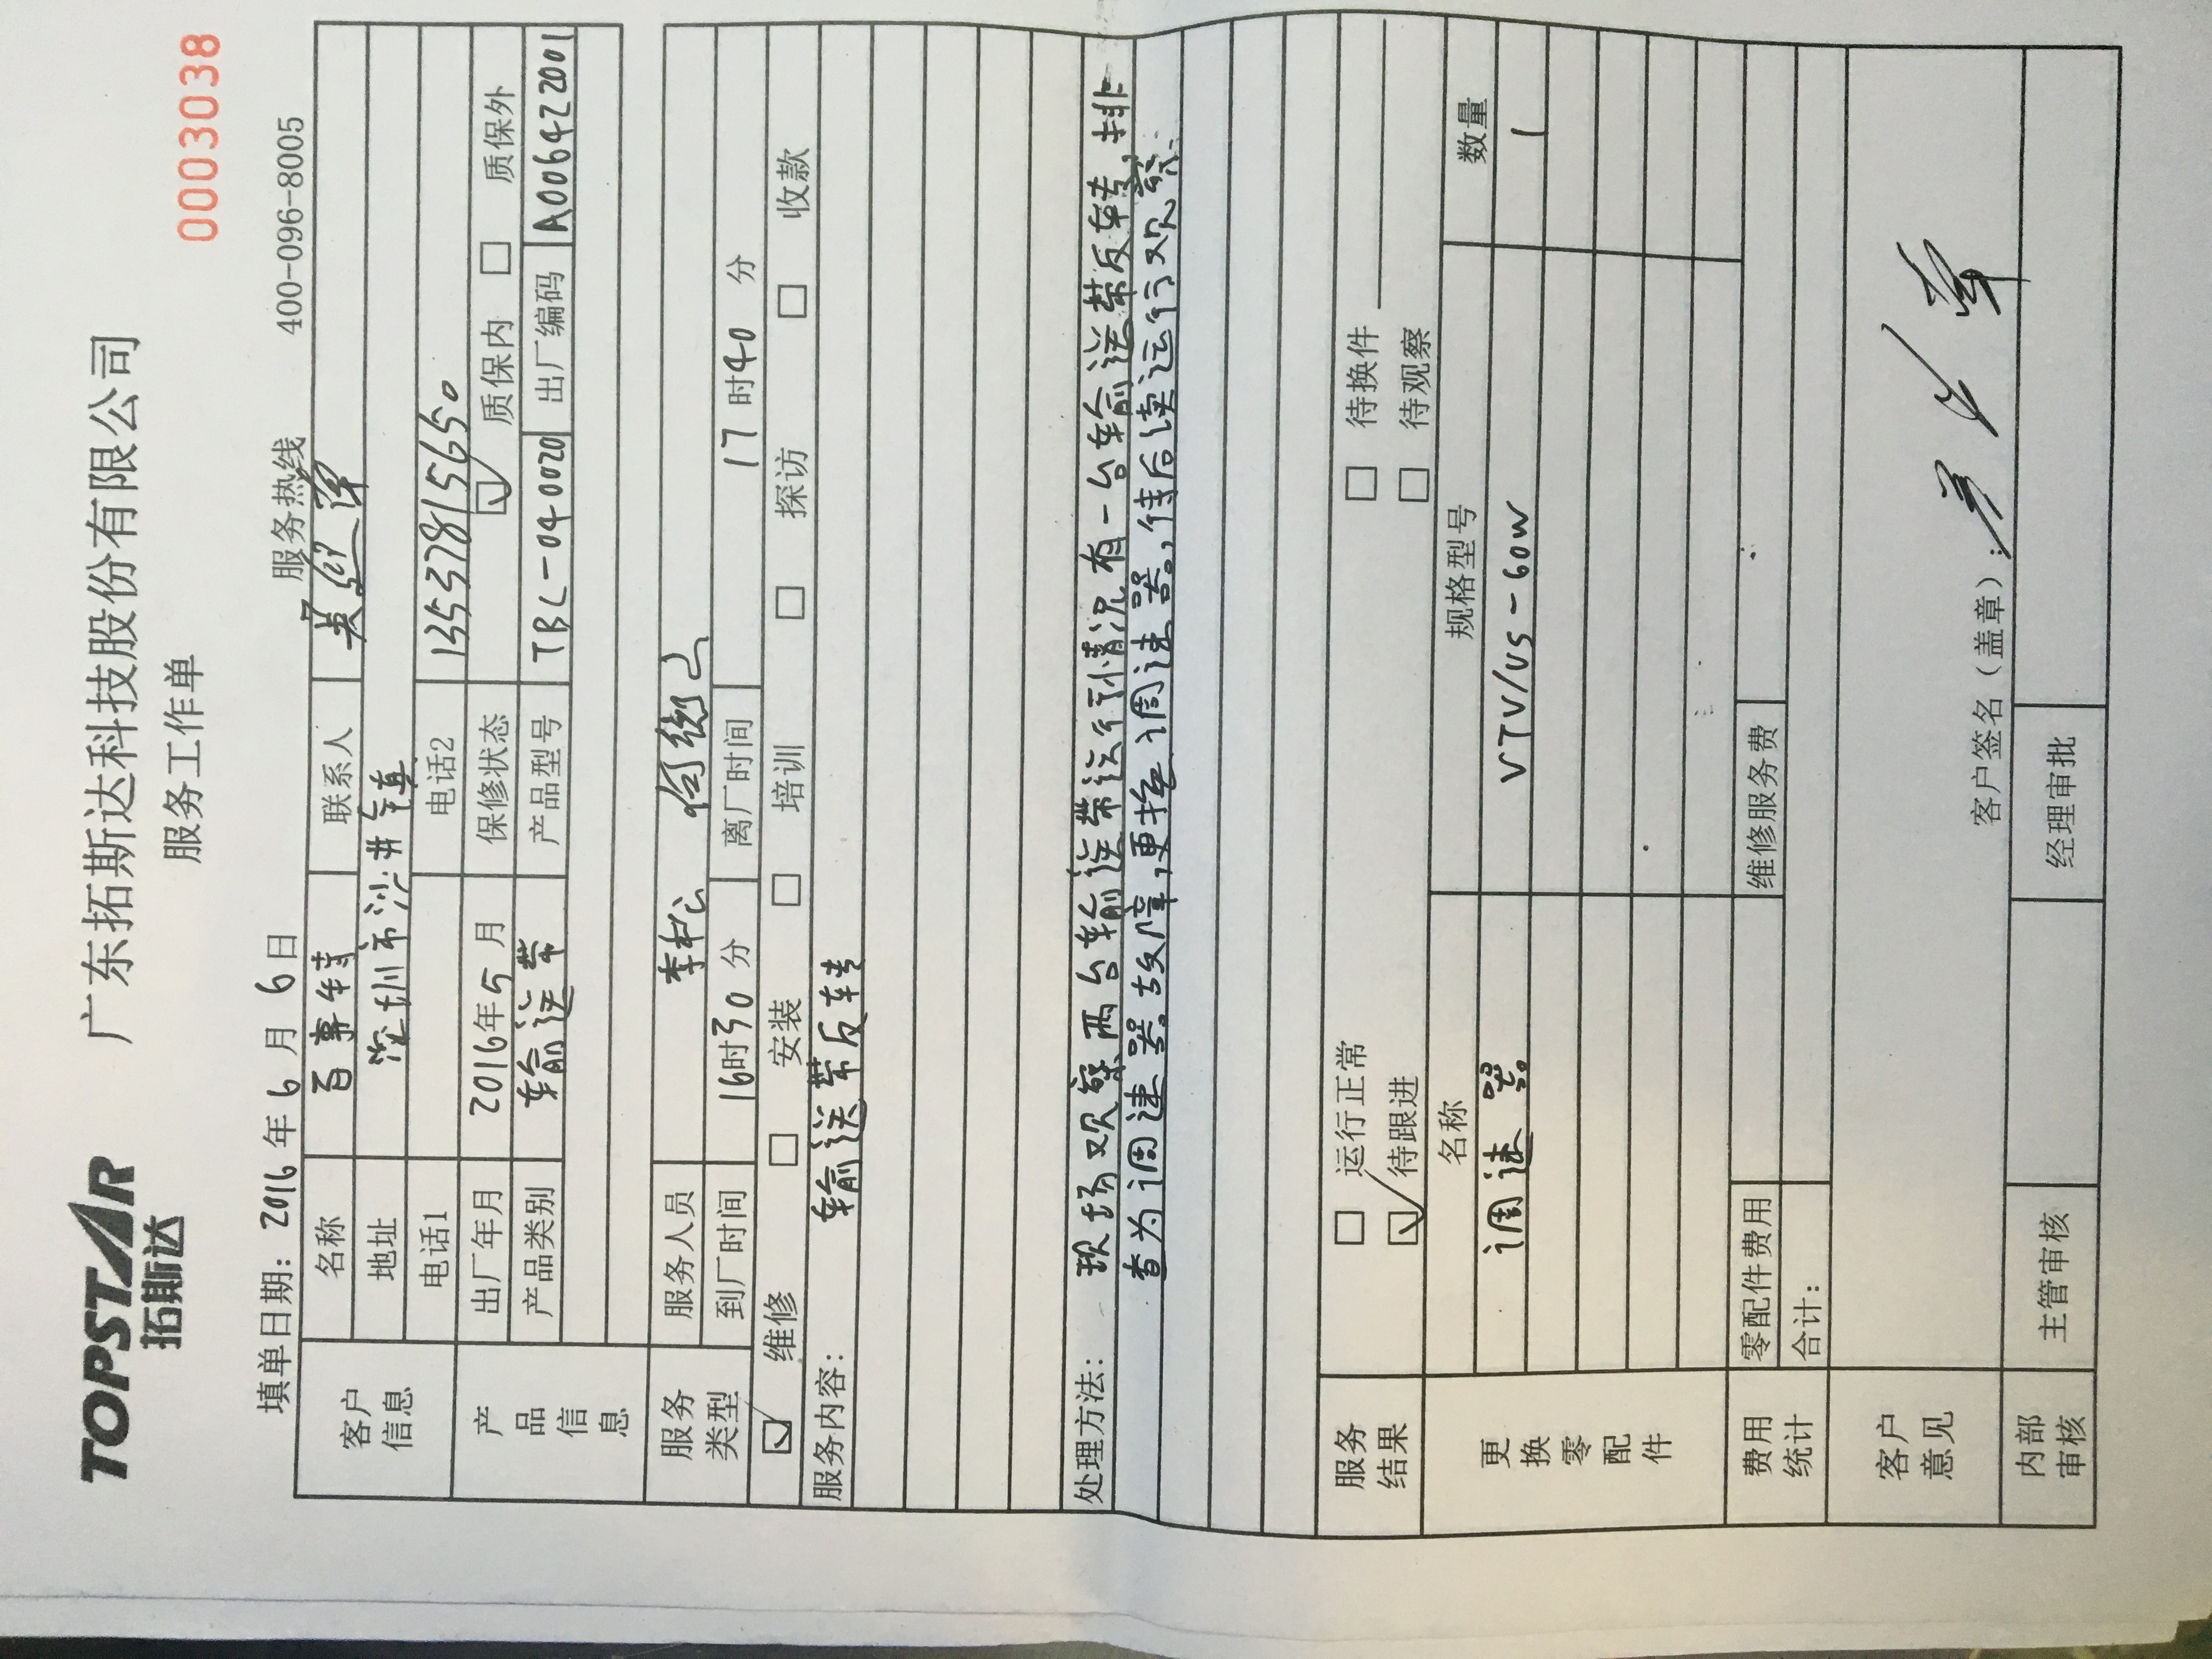 TOPSTAR
拓斯达
广东拓斯达科技股份有限公司
服务工作单
0003038
填单日期: 2016 年 6 月 6 日 服务热线 400-096-8005
客户信息 名称 百事特 联系人
地址 深圳市沙井镇
电话1 电话2 13537815650
产品信息 出厂年月 2016年5月 保修状态 ☑ 质保内 □ 质保外
产品类别 输送带 产品型号 TBL-040020 出厂编码 A00642001
服务类型 服务人员 李松 何
到厂时间 16时30分 离厂时间 17时40分
☑ 维修 □ 安装 □ 培训 □ 探访 □ 收款
服务内容: 输送带反转
处理方法: 现场观察两台输送带运行情况,有一台输送带反转,排
查为调速器故障,更换调速器,待后续运行观察.
服务结果 □ 运行正常 □ 待换件
☑ 待跟进 □ 待观察
更换零配件 名称 规格型号 数量
调速器 VTV/US-60W 1
费用统计 零配件费用 维修服务费
合计:
客户意见
客户签名(盖章):
内部审核 主管审核 经理审批